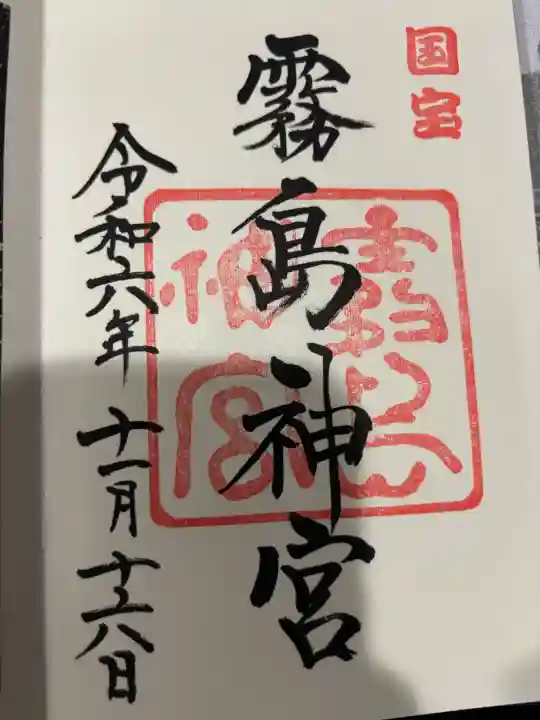 国宝
霧島神宮
霧島神宮
令和六年 十一月十六日